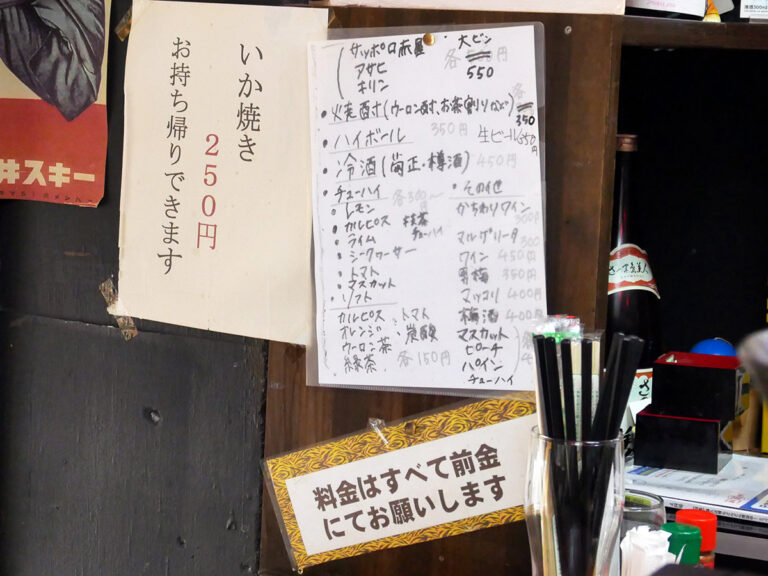 井スキー
いか焼き
250円
お持ち帰りできます
サッポロ赤星
アサヒ
キリン
大ビン
各 円
550
・焼酎(ウーロン酎、お茶割りなど)各350
・ハイボール 350円
生ビール350円
・冷酒(菊正・樽酒) 450円
・チューハイ 各300円
・レモン
・カルピス
・ライム
・シークヮーサー
・トマト
・マスカット
抹茶
チューハイ
・ソフト
カルピス ・トマト
オレンジ ・炭酸
ウーロン茶
緑茶 各150円
・その他
かちわりワイン
300円
マルガリータ 300
ワイン 450円
男梅 350円
マッコリ 400円
梅酒 400円
マスカット
ピーチ
パイン
チューハイ
料金はすべて前金
にてお願いします